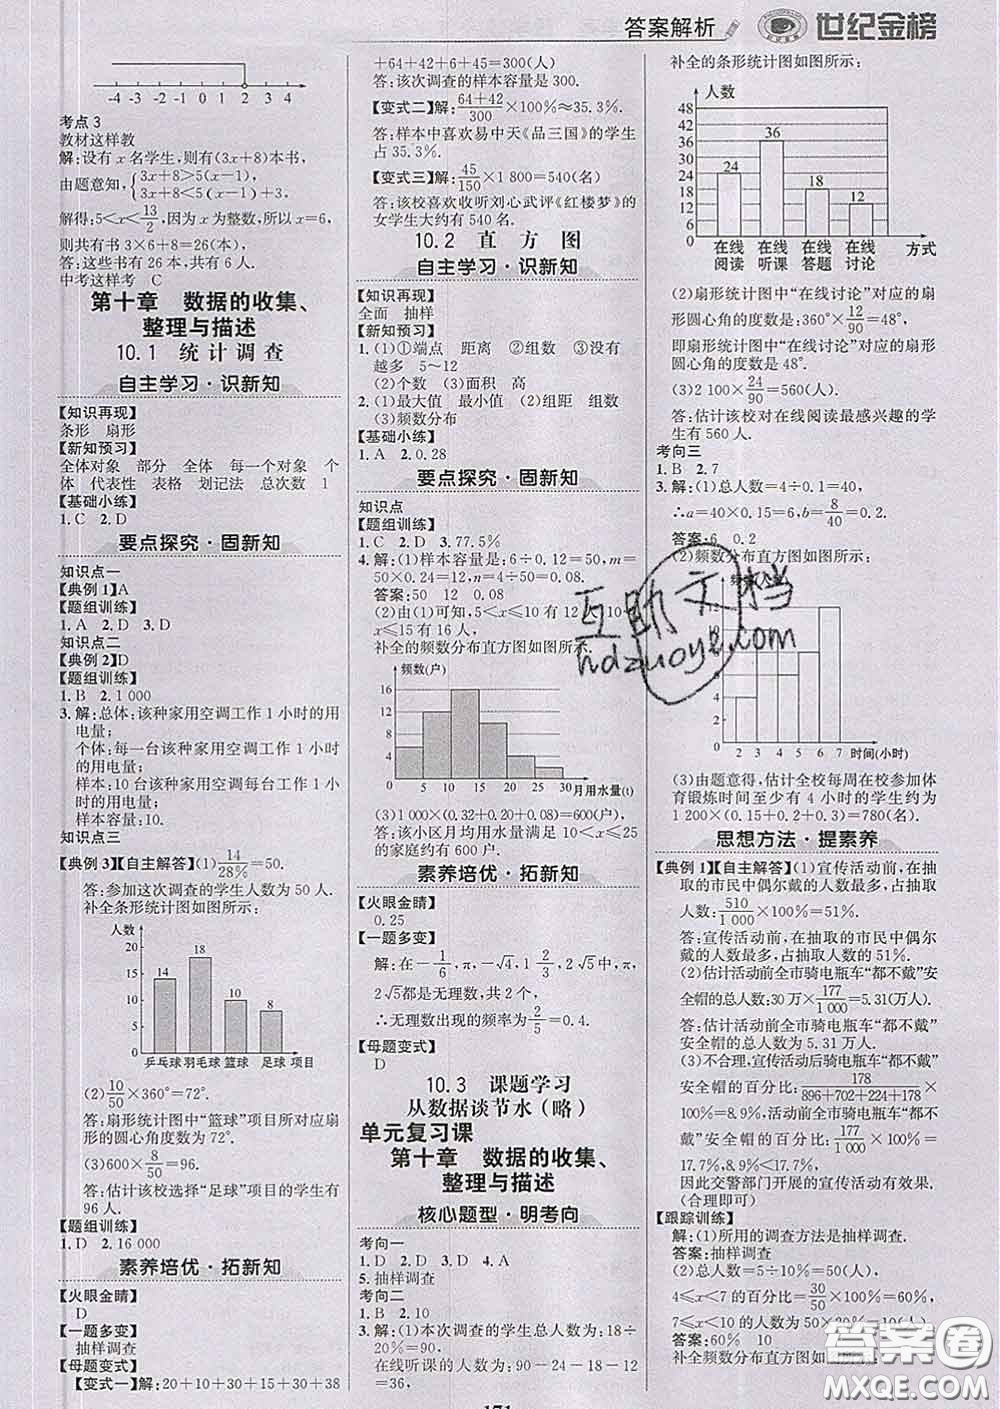 答案解析
世纪金榜
-4 -3 -2 -1 0 1 2 3 4
考点 3
教材这样教
解:设有 x 名学生,则有(3x+8)本书,
由题意知,{3x+8>5(x-1),
3x+8<5(x-1)+3.
解得:5<x<13/2,因为 x 为整数,所以 x=6,
则共有书 3×6+8=26(本)
答:这些书有 26 本,共有 6 人.
中考这样考 C
第十章 数据的收集、
整理与描述
10.1 统计调查
自主学习·识新知
【知识再现】
条形 扇形
【新知预习】
全体对象 部分 全体 每一个对象 个
体 代表性 表格 划记法 总次数 1
【基础小练】
1.C 2.D
要点探究·固新知
知识点一
【典例 1】A
【题组训练】
1.A 2.D 3.D
知识点二
【典例 2】D
【题组训练】
1.B 2.1 000
3.解:总体:该种家用空调工作 1 小时的用
电量;
个体:每一台该种家用空调工作 1 小时
的用电量;
样本:10 台该种家用空调每台工作 1 小
时的用电量;
样本容量:10.
知识点三
【典例 3】【自主解答】(1)14/28%=50.
答:参加这次调查的学生人数为 50 人.
补全条形统计图如图所示:
人数
20
15
10
5
0
14 18 10 8
乒乓球 羽毛球 篮球 足球 项目
(2)10/50×360°=72°.
答:扇形统计图中“篮球”项目所对应扇
形的圆心角度数为 72°.
(3)600×8/50=96.
答:估计该校选择“足球”项目的学生有
96 人.
【题组训练】
1.D 2.16 000
素养培优·拓新知
【火眼金睛】
D
【一题多变】
抽样调查
【母题变式】
【变式一】解:20+10+30+15+30+38
+64+42+6+45=300(人)
答:该次调查的样本容量是 300.
【变式二】解:64+42/300×100%≈35.3%.
答:样本中喜欢易中天《品三国》的学生
占 35.3%.
【变式三】解:45/150×1 800=540(名)
答:该校喜欢收听刘心武评《红楼梦》的
女学生大约有 540 名.
10.2 直方图
自主学习·识新知
【知识再现】
全面 抽样
【新知预习】
1.(1)①端点 距离 ②组数 ③没有
越多 5~12
(2)个数 (3)面积 高
2.(1)最大值 最小值 (2)组距 组数
(3)频数分布
【基础小练】
1.A 2.0.28
要点探究·固新知
知识点
【题组训练】
1.C 2.D 3.77.5%
4.解:(1)样本容量是:6÷0.12=50,m=
50×0.24=12,n=4÷50=0.08.
答案:50 12 0.08
(2)由(1)可知,5<x≤10 有 12
≤15 有 16 人,
补全的频数分布直方图如图所示.
频数(户)
16
12
8
4
0 5 10 15 20 25 30 月用水量(t)
(3)1 000×(0.32+0.20+0.08)=600(户),
答:该小区月均用水量满足 10<x≤25
的家庭约有 600 户.
素养培优·拓新知
【火眼金睛】
0.25
【一题多变】
解:在-1/6,π,-√4,1 2/3,2√5 中,π,
2√5都是无理数,共 2 个,
∴无理数出现的频率为2/5=0.4.
【母题变式】
D
10.3 课题学习
从数据谈节水(略)
单元复习课
第十章 数据的收集、
整理与描述
核心题型·明考向
考向一
1.D 2.D 3.D 4.A
5.抽样调查
考向二
1.B 2.10
3.解:(1)本次调查的学生总人数为:18÷
20%=90,
在线听课的人数为:90-24-18-12
=36,
171
补全的条形统计图如图所示:
人数
48
42
36
30
24
18
12
6
0
24 36 18 12
在线阅读 在线听课 在线答题 在线讨论 方式
(2)扇形统计图中“在线讨论”对应的扇
形圆心角的度数是:360°×12/90=48°,
即扇形统计图中“在线讨论”对应的扇形
圆心角的度数是 48°.
(3)2 100×24/90=560(人).
答:估计该校对在线阅读最感兴趣的学
生有 560 人.
考向三
1.B 2.7
3.解:(1)总人数=4÷0.1=40,
∴a=40×0.15=6,b=8/40=0.2.
答案:6 0.2
(2)频数分布直方图如图所示:
2 3 4 5 6 7 时间(小时)
(3)由题意得,估计全校每周在校参加体
育锻炼时间至少有 4 小时的学生约为
1 200×(0.15+0.2+0.3)=780(名).
思想方法·提素养
【典例 1】【自主解答】(1)宣传活动前,在抽
取的市民中偶尔戴的人数最多,占抽取
人数:510/1 000×100%=51%.
答:宣传活动前,在抽取的市民中偶尔
戴的人数最多,占抽取人数的 51%.
(2)估计活动前全市骑电瓶车“都不戴”安
全帽的总人数:30 万×177/1 000=5.31(万人).
答:估计活动前全市骑电瓶车“都不戴”
安全帽的总人数为 5.31 万人.
(3)不合理,宣传活动后骑电瓶车“都不戴”
安全帽的百分比:178/896+702+224+178×
100%=8.9%,活动前全市骑电瓶车“都不
戴”安全帽的百分比:177/1 000×100%=
17.7%,8.9%<17.7%,
因此交警部门开展的宣传活动有效果.
(合理即可)
【跟踪训练】
解:(1)所用的调查方法是抽样调查.
答案:抽样调查
(2)总人数=5÷10%=50(人),
4≤x<7 的百分比=30/50×100%=60%,
7≤x<10 的人数=50×20%=10(人)
答案:60% 10
补全频数分布直方图如图所示:
互助文档
hdzuoye.com
答案圈
MXQE.COM